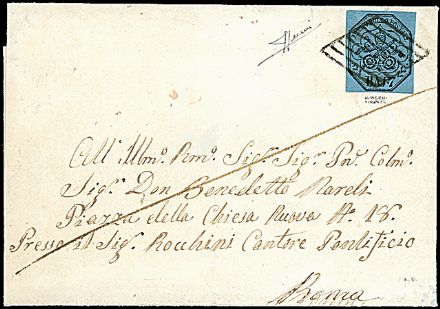 All' Illmo. Rmo. Sigr. Sigr. Pnē. Colmo.
Sigr. Don Benedetto Nareli
Piazza della Chiesa Nuova No. 18.
Presso il Sigr. Rocchini Cantore Pontificio
Roma